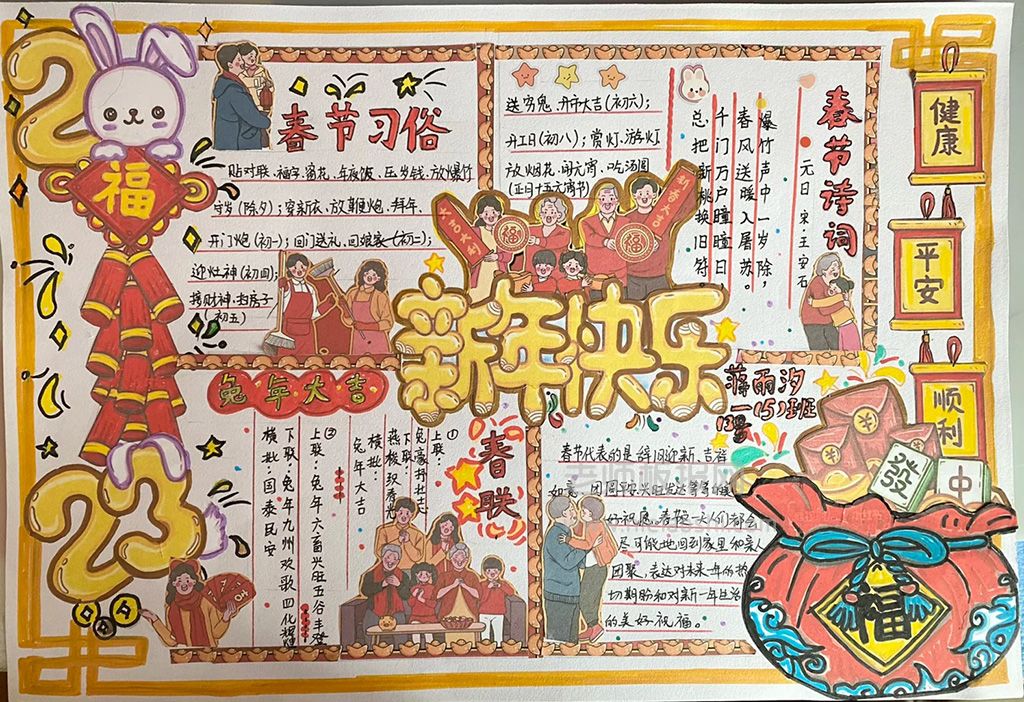 2023
福
春节习俗
贴对联、福字、窗花、年夜饭、压岁钱、放爆竹
守岁(除夕);穿新衣、放鞭炮、拜年、
开门炮(初一);回门送礼、回娘家(初二);
迎灶神(初四);
接财神、扫房子
(初五)
送穷鬼、开市大吉(初六);
开工日(初八);赏灯、游灯
放烟花、闹元宵、吃汤圆
(正月十五元宵节)
春节诗词
元日 宋·王安石
爆竹声中一岁除,
春风送暖入屠苏。
千门万户曈曈日,
总把新桃换旧符。
健康
平安
顺利
大吉大利
新春大吉
福
新年快乐
蒋雨汐
一(5)班
兔年大吉
春联
①
上联:
下联:
燕梭
横批:
兔年大吉
②
上联:兔年六畜兴旺五谷丰
下联:兔年九州欢歌四化
横批:国泰民安
春节代表的是辞旧迎新、吉祥
如意、团圆平安、兴旺发达等等
好祝愿。春节
尽可能地回到家里和亲人
团聚,表达对未来一年的热
切期盼和对新一年生活
的美好祝福。
發
中
福